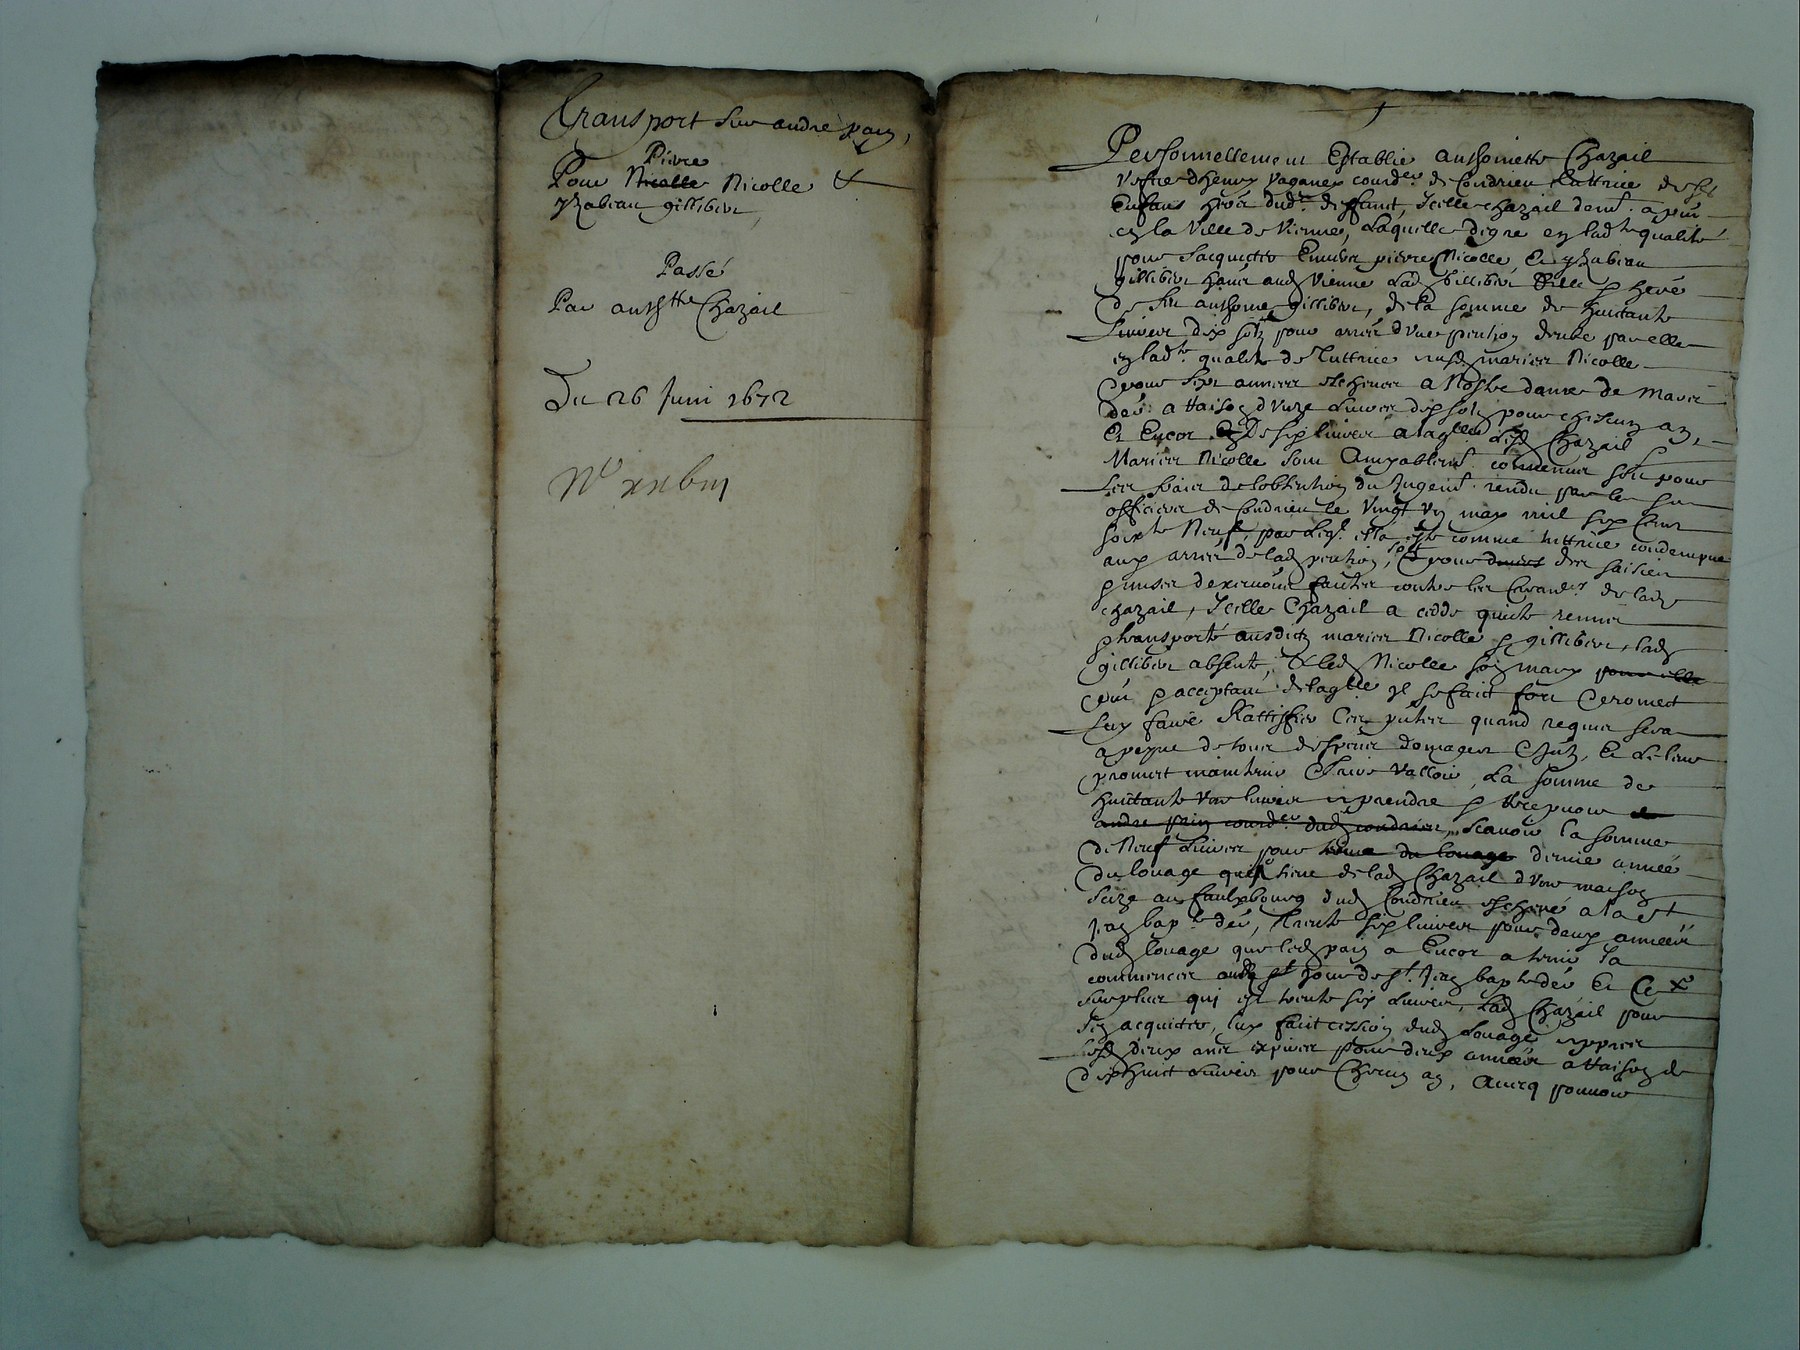 Transport sur andre pain,
Pierre
Pour Nicolle Nicolle &
yzabeau gillibert,
Passé
Par anthtte Chazail
Du 26 Juin 1672
No xxbiij
Personnellement Establie anthoinette Chazail
Vefve dhenry courdr de Condrieu tuttrice de ses
Enfans dudt deffunt, Icelle Chazail demt a pnt
en la Ville de Vienne, Laquelle de gre en ladte qualité
pour Sacquitter Envers pierre Nicolle, Et yzabeau
gillibert audt Vienne Lad gillibert fille &
de feu anthoine gillibert, de la somme de huictante
Livres dix solz pour arrer dune pention deube par elle
en ladte qualité de Tuttrice mariez Nicolle
pour sept annees a Nostre dame de Mars
der a Raison dune Livres dix solz pour chescun an,
Et Encor de six livres a laqlle Lesd Chazail &
Mariez Nicolle sont Amyablemt convenus pour
Les frais de lobtention du Jugemt rendu par les srs
officiers de Condrieu le Vingt un may mil six Cens
soixte Neuf, par Leql. ella este comme tuttrice condempnee
aux arrer de lad pention, soit pour des saisies
& mises faites contre les de lade
Chazail, Icelle Chazail a cedde quicte remis
& transporté ausdictz mariez Nicolle & gillibert, lad
gillibert absente, & led Nicolle son mary pour elle
pnt & acceptant de laqlle yl se faict fort & promect
Luy faire Rattiffier Ces pntes quand requis sera
a peyne de tous despens domages & Intz, Et de leur
promect maintenir & faire Valloir, La somme de
huictante Une livres a prendre & Recepvoir de
andre pain courdr dud condrieu, scavoir la somme
de Neuf Livres pour reste du louage dernie année
du louage quil tient de lad Chazail dune maison
Seize au faulxbourg dud Condrieu a la st
Jean bapte der, trente six livres pour deux années
dud louage que led pain a Encor a tenir la
commencer aud st jour de st Jean bapte der Et Ce
surplus qui est trente six Livres, Lad Chazail pour
sen acquitter, luy faict cession dud Louage appres
lesd deux ans expirer pour deux années a Raison de
dixhuict Livres pour Chescun an, Avecq pouvoir